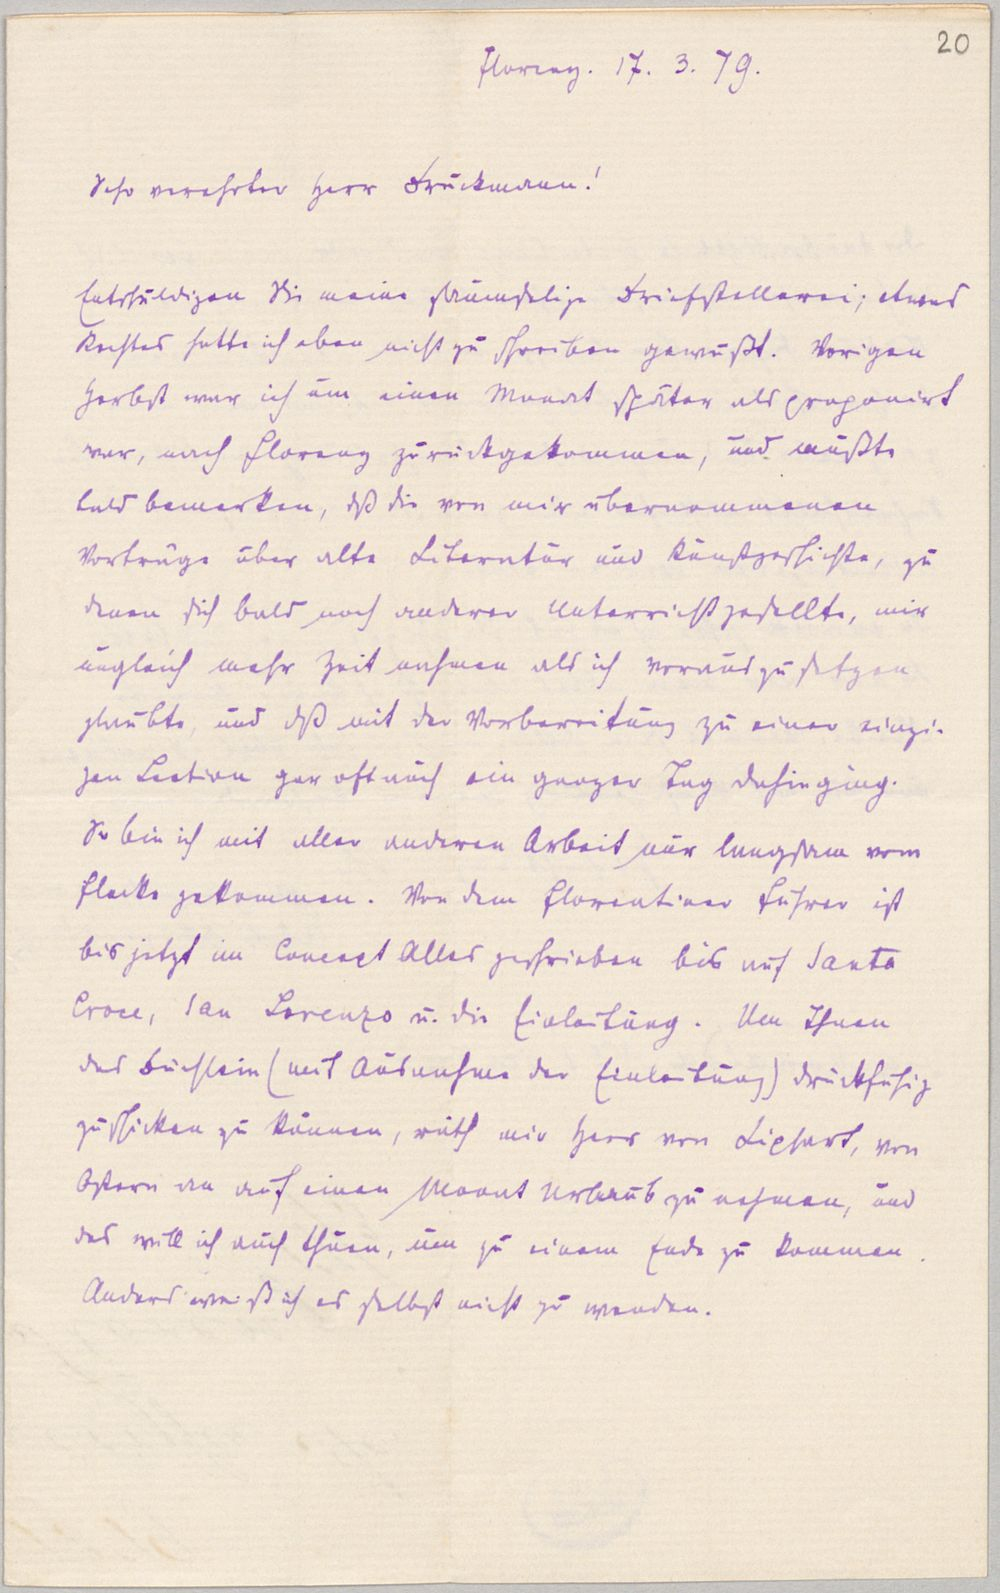 20
Florenz. 17. 3. 79.
Sehr verehrter Herr Bruckmann!
Entschuldigen Sie meine saumselige Briefstellerei; etwas
Rechtes hatte ich eben nicht zu schreiben gewußt. Vorigen
Herbst war ich um einen Monat später als proponirt
war, nach Florenz zurückgekommen, und mußte
bald bemerken, dß die von mir übernommenen
Vorträge über alte Literatur und Kunstgeschichte, zu
denen sich bald noch anderer Unterricht gesellte, mir
ungleich mehr Zeit nahmen als ich vorauszusetzen
glaubte, und dß mit der Vorbereitung zu einer einzi-
gen Lection gar oft auch ein ganzer Tag dahinging.
So bin ich mit aller anderen Arbeit nur langsam vom
Flecke gekommen. Von dem Florentiner Führer ist
bis jetzt im Concept Alles geschrieben bis auf Santa
Croce, San Lorenzo u. die Einleitung. Um Ihnen
das Büchlein (mit Ausnahme der Einleitung) druckfähig
zuschicken zu können, räth mir Herr von Liphart, von
Ostern an auf einen Monat Urlaub zu nehmen, und
das will ich auch thuen, um zu einem Ende zu kommen.
Anders weiß ich es selbst nicht zu wenden.